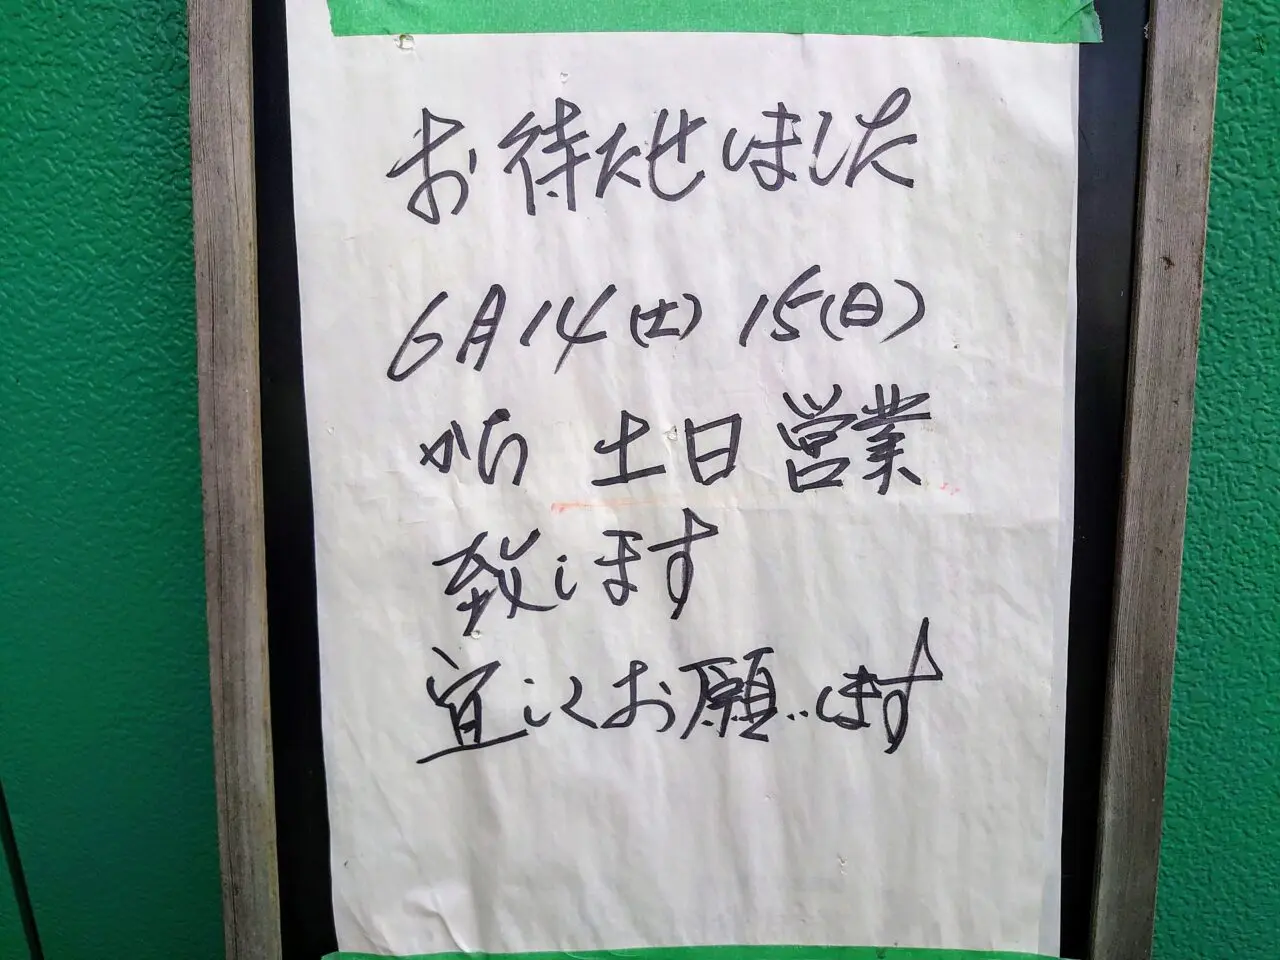 お待たせしました
6月14(土) 15(日)
から 土日 営業
致します
宜しくお願いします